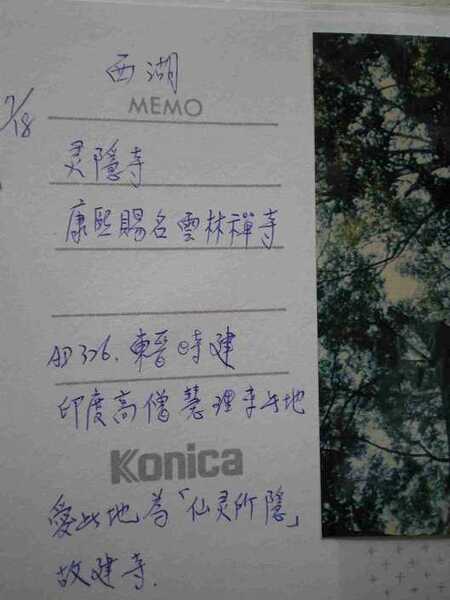 西湖
MEMO
7/18
灵隱寺
康熙賜名雲林禪寺
AD 326. 東晉時建
印度高僧慧理來此地
Konica
愛此地為「仙灵所隱」
故建寺.